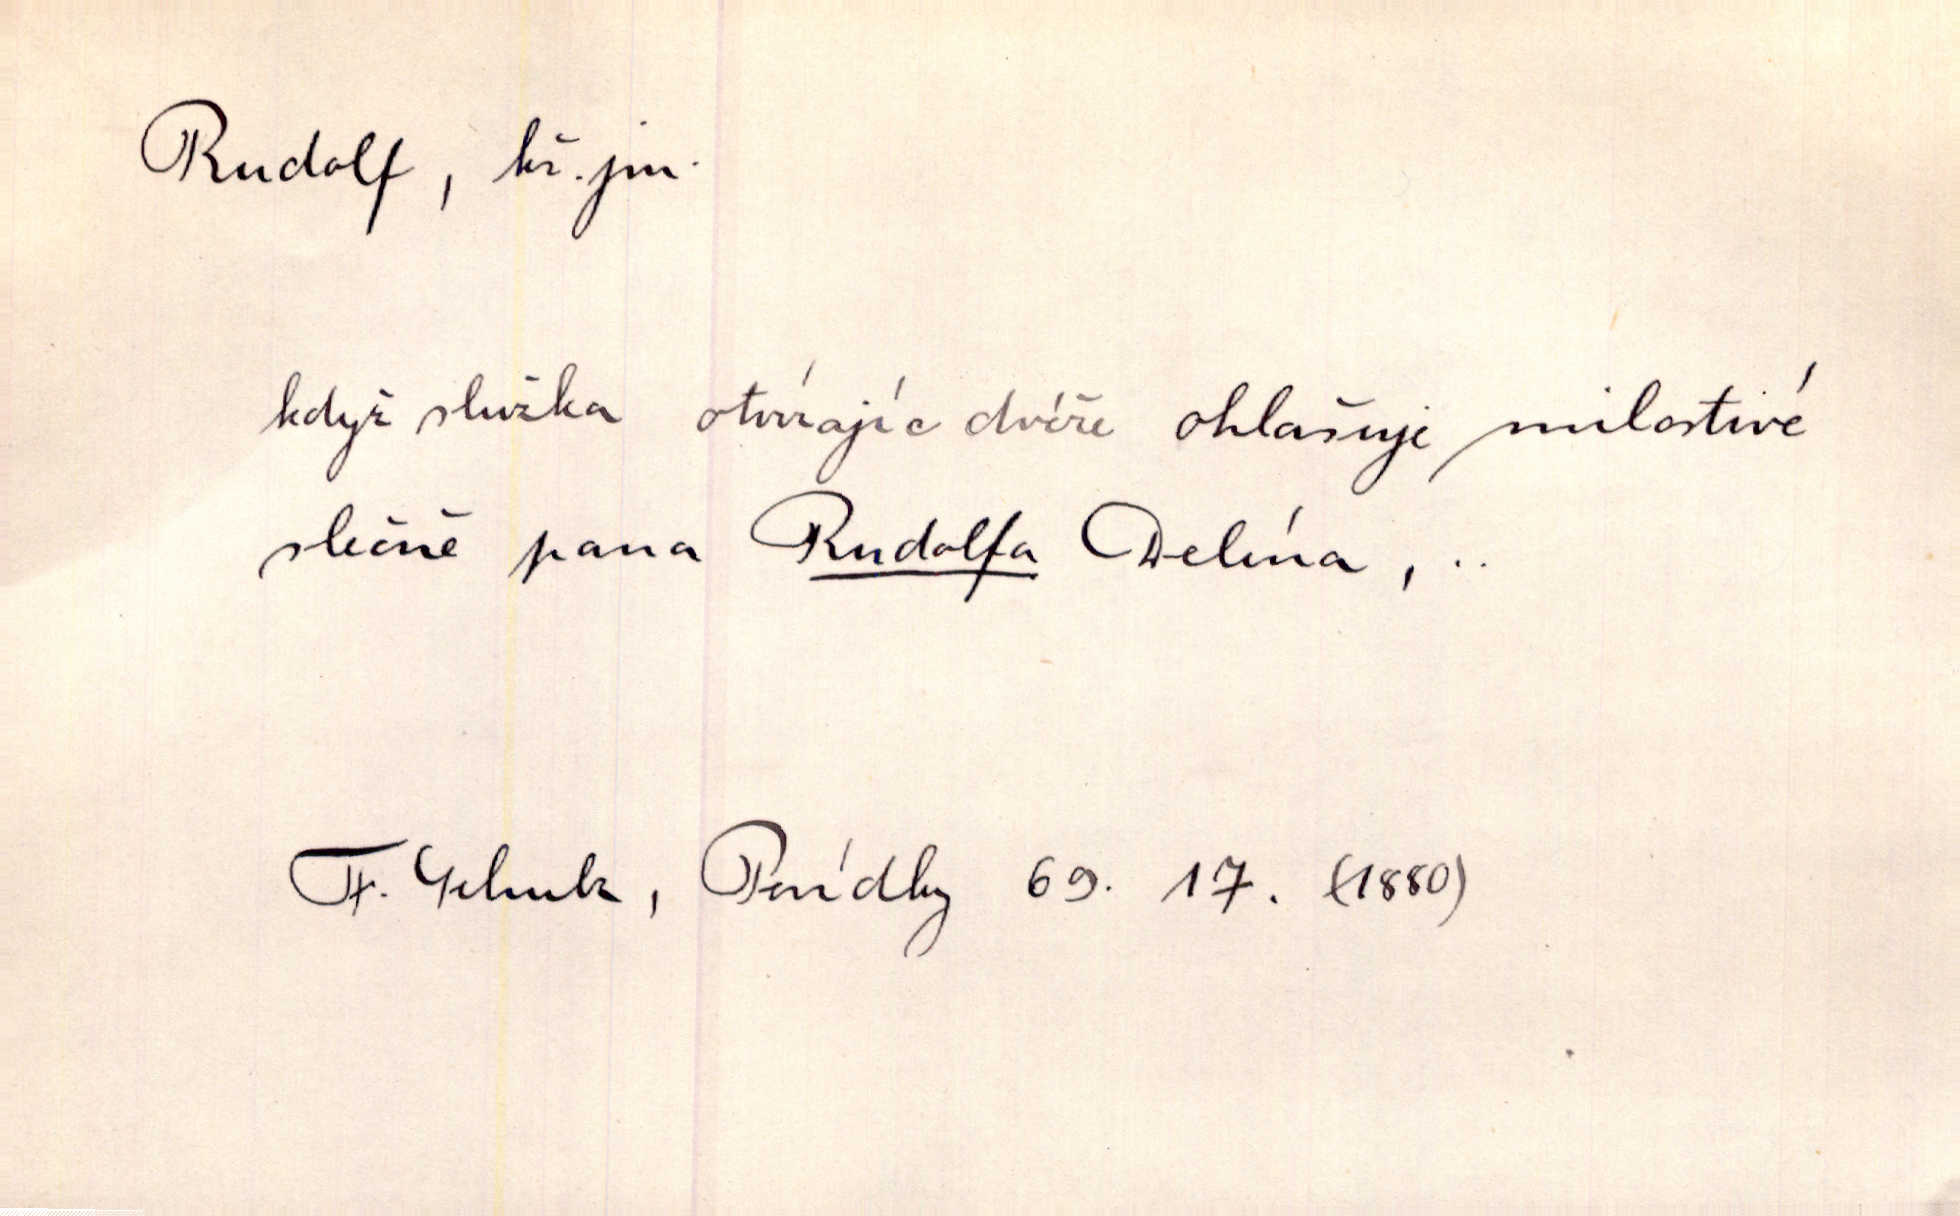 Rudolf, kř. jm.
když služka otvírajíc dvéře ohlašuje milostivé
slečně pana Rudolfa Delína, ..
F. Schulz, Povídky 69. 17. (1880)